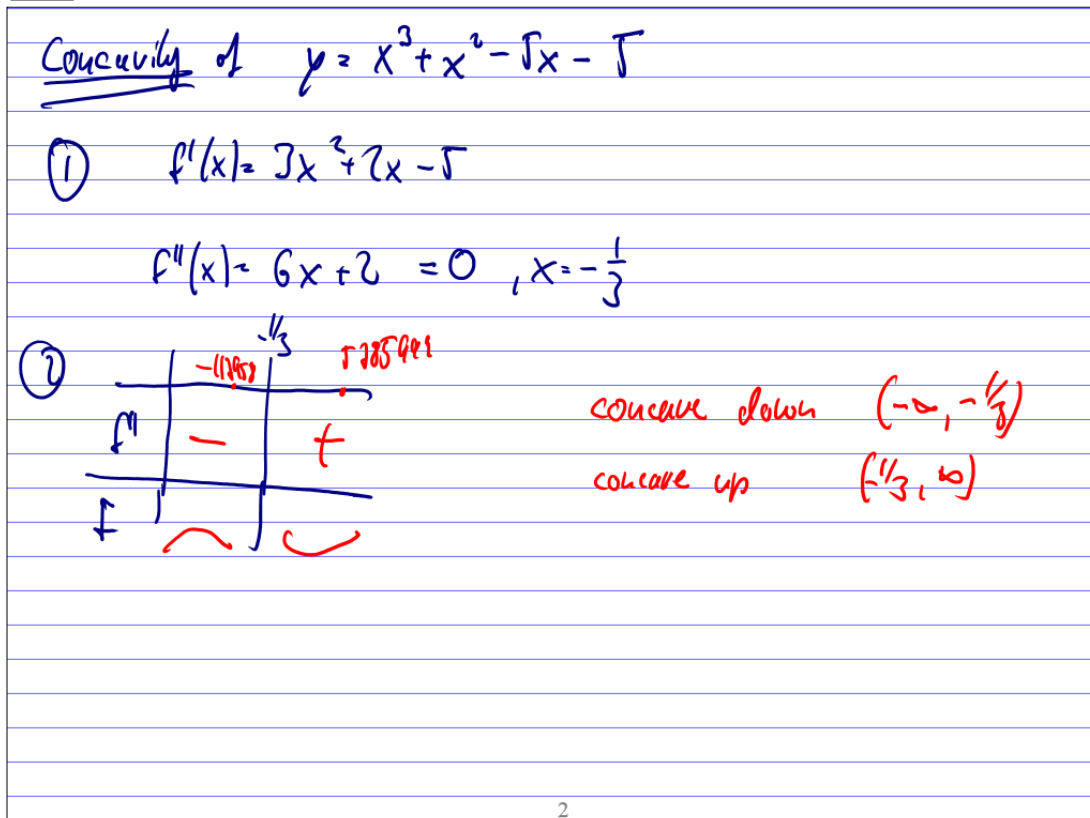 Concavity of y = x³ + x² - 5x - 5
① f'(x) = 3x² + 2x - 5
f''(x) = 6x + 2 = 0 , x = -1/3
② -1/3
f'' - +
f
concave down (-∞, -1/3)
concave up (-1/3, ∞)
2